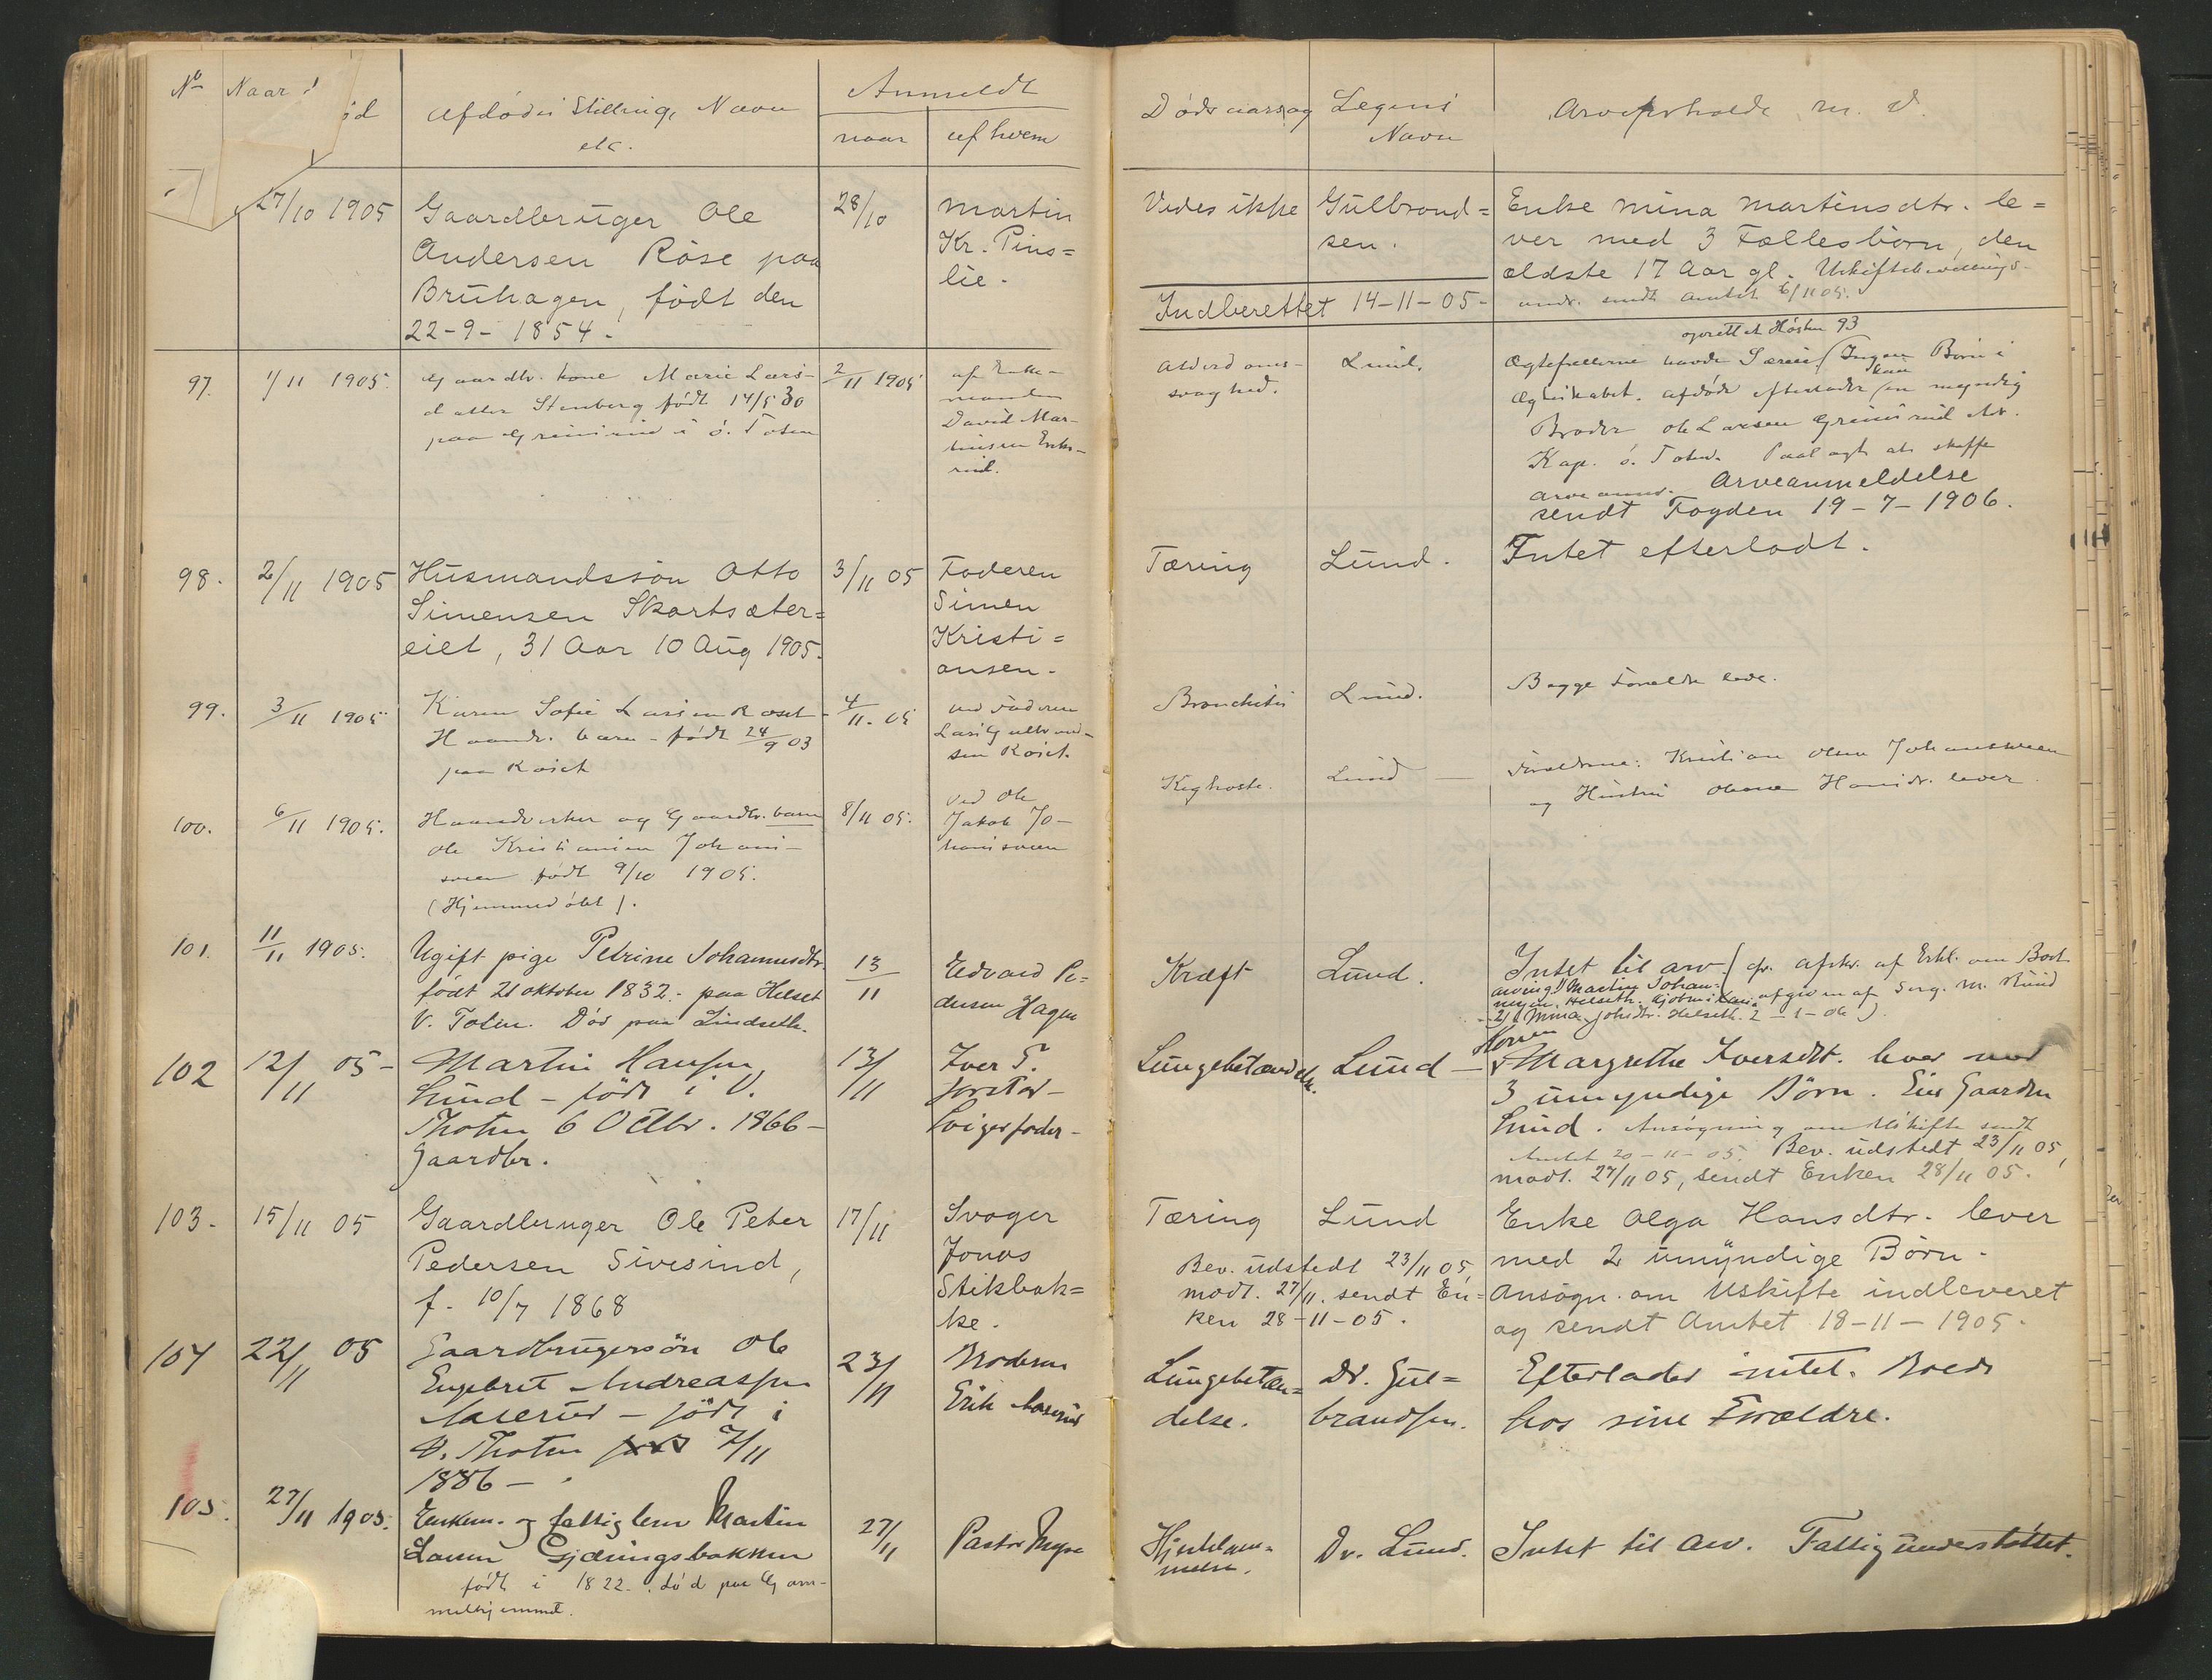 No
Naar
ød
Afdødes Stilling, Navn
etc.
Anmeldt
naar
af hvem
Dødsaarsag
Legens
Navn
Arveforholde m. v.
27/10 1905
Gaardbruger Ole
Andersen Röse paa
Bruhagen, födt den
22-9-1854.
28/10
Martin
Kr. Pins=
lie.
Vides ikke
Gulbrand=
sen.
Enke Mina Martinsdtr. le=
ver med 3 Fællesbörn, den
ældste 17 Aar gl. Uskiftebevillings-
andr. sendt Amtet 6/11 05.
Indberettet 14-11-05-
97.
1/11 1905.
Gaardbr. kone Marie Lars-
datter Stenberg født 14/5 30
paa Grimsrud i ö. Toten
2/11 1905
af Enke-
manden
David Mar-
tinsen Enks-
rud.
Alderdoms-
svaghed.
Lund.
oprettet Høsten 93
Ægtefællerne havde Særeie (Ingen Børn i
kun
Ægteskabet. Afdøde efterlader en myndig
Broder Ole Larsen Grimsrud
Kap. ö. Toten. Paalagt at skaffe
arveanm. Arveanmeldelse
sendt Fogden 19-7-1906.
98.
2/11 1905
Husmandssön Otto
Simensen Skartsæter=
eiet, 31 Aar 10 Aug 1905.
3/11 05
Faderen
Simen
Kristi=
ansen.
Tæring
Lund.
Intet efterladt.
99.
3/11 1905
Karen Sofie Larsen Roset
Haandv. barn - født 24/9 03
paa Roset
4/11. 05
ved Faderen
Lars Gulbrand-
sen Roset.
Bronchitis
Lund.
Begge Forældre leve.
100.
6/11 1905.
Haandverker og Gaardbr. barn
Ole Kristiansen Johans-
sveen født 9/10 1905.
(Hjemmedøbt).
8/11 05.
ved Ole
Jakob Jo-
hanssveen
Kighoste.
Lund
Forældrene: Kristian Olsen Johanssveen
og Hustru Hansdr. lever.
101.
11/11 1905.
Ugift pige Petrine Johannesdtr.
født 21 oktober 1832.- paa Helset
V. Toten. Død paa Lindseth.
13/11
Edvard Pe-
dersen Hagen
Kræft
Lund.
Intet til arv (cfr. afskr. af Erkl. om Bort
arving: 1) Martin Johan-
nesen Helseth. afgiven af Serg. M.
2) Mina Johsdtr. Helseth. 2-1-06).
102
12/11 05-
Martin Hansen
Lund - födt i V.
Thoten 6 Octbr. 1866-
Gaardbr.
13/11
Iver T.
Svigerfader-
Lungebetændelse.
Lund
Konen
Margrethe Iversdt. lever med
3 umyndige Börn. Eier Gaarden
Lund. Ansøgning om Uskifte sendt
Amtet 20-11-05. Bev. udstedt 23/11 05,
modt. 27/11 05, sendt Enken 28/11 05.
103.
15/11 05
Gaardbruger Ole Peter
Pedersen Sivesind,
f. 10/7 1868
17/11
Svoger
Jonas
Stikbak=
ke.
Tæring
Lund
Bev. udstedt 23/11 05,
modt. 27/11. sendt En=
ken 28-11-05.
Enke Olga Hansdtr. lever
med 2 umyndige Börn.
Ansögn. om Uskifte indleveret
og sendt Amtet 18-11-1905.
104
22/11 05
Gaardbrugersön Ole
Engebret Andreassen
Aaserud - födt i
V. Thoten 7/11
1886-
23/11
Broderen
Erik Aaserud
Lungebetæn=
delse.
Dr. Gul=
brandsen.
Efterlader intet. Boede
hos sine Forældre.
105.
27/11 1905.
Enkem. og fattiglem Martin
Larsen Gjæringsbakken
født i 1822. død paa Gam-
melhjemmet.
27/11
Pastor Myse
Hjertelam-
melse.
Dr. Lund.
Intet til Arv. Fattigunderstöttet.